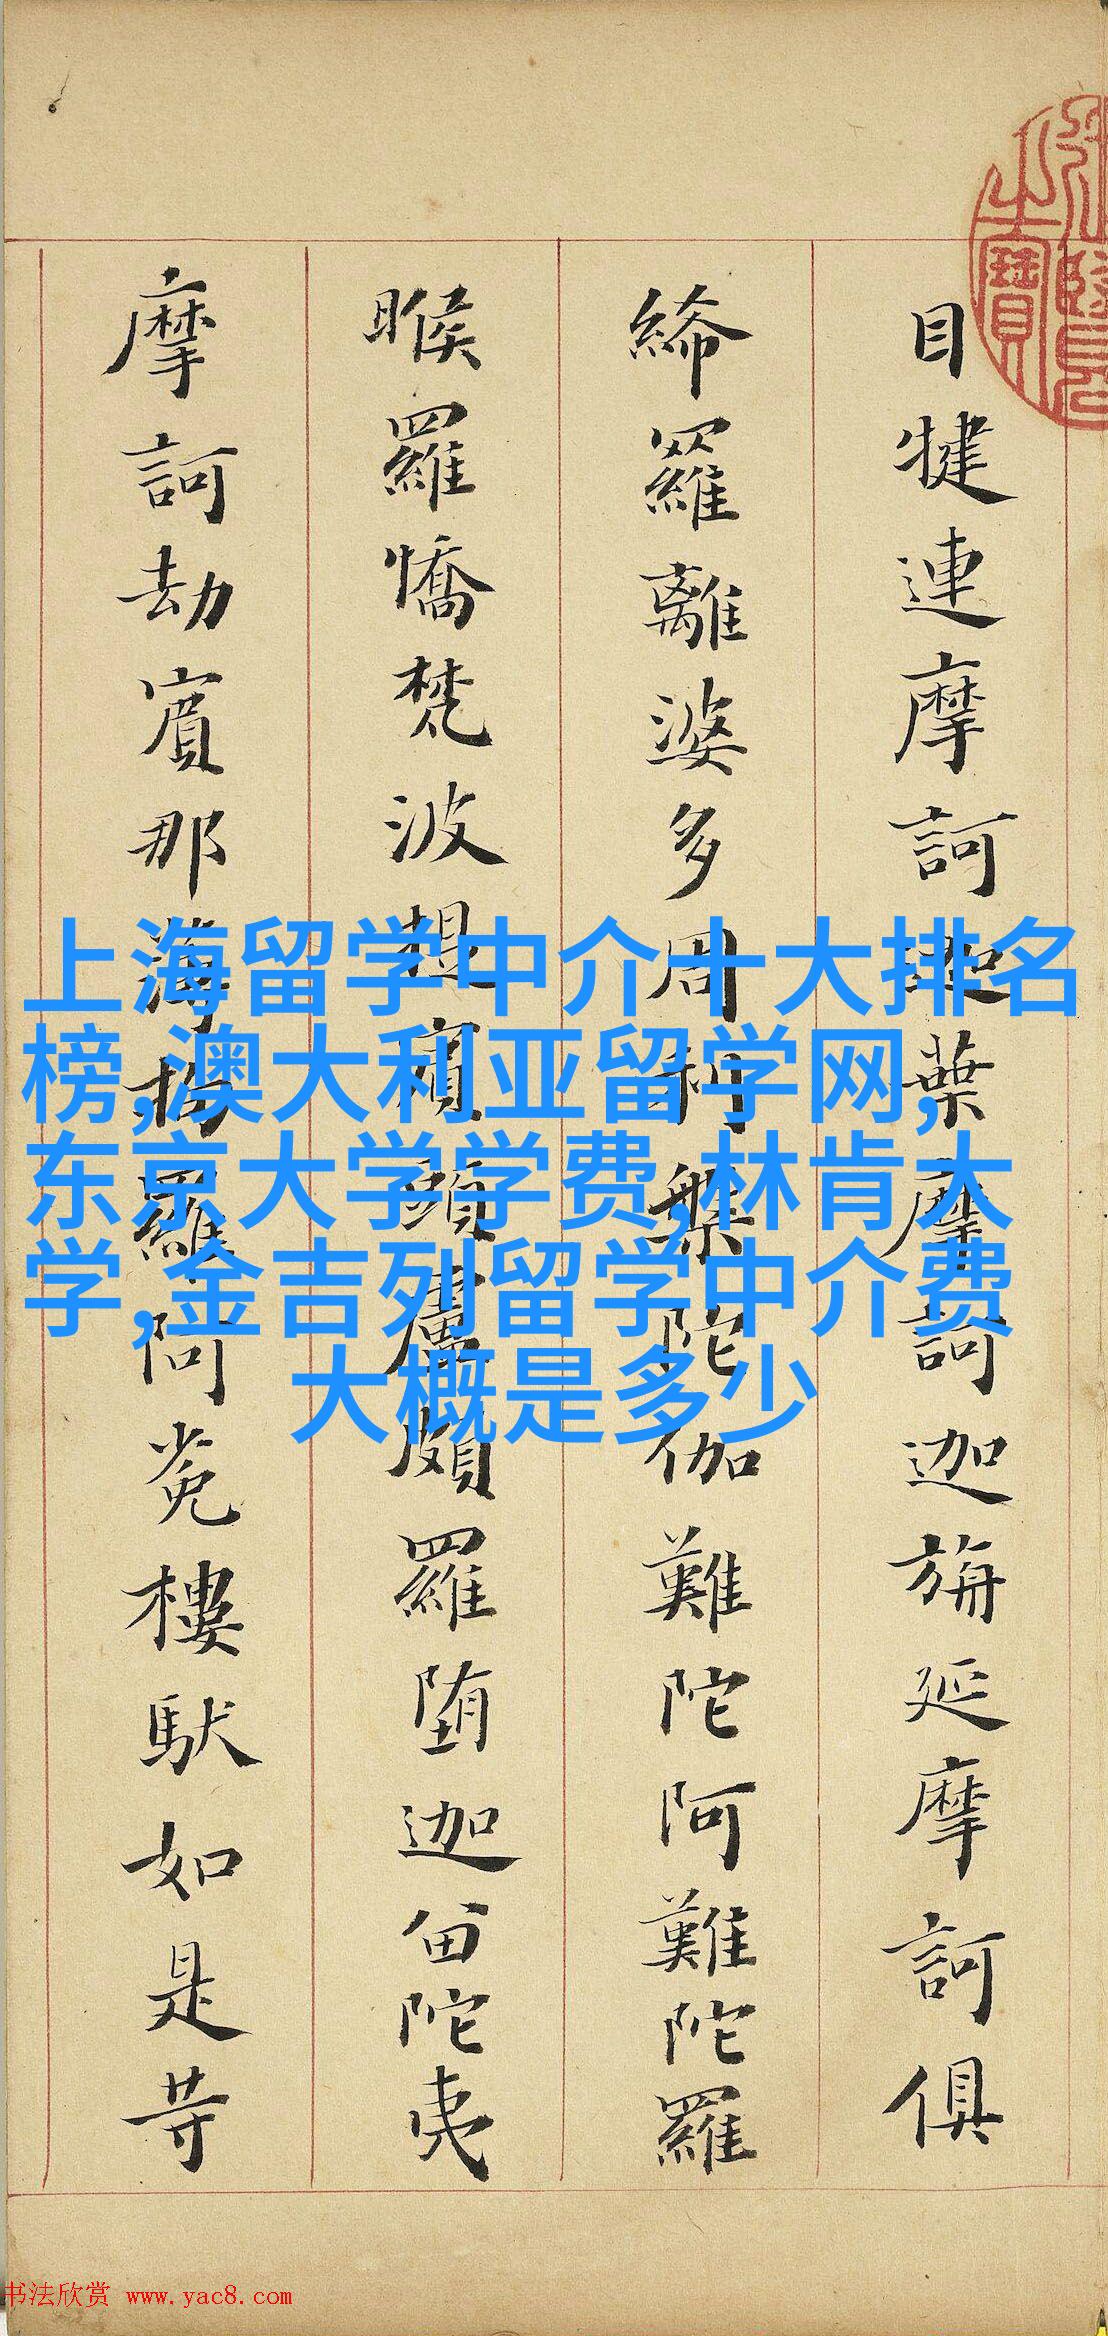 目犍連摩訶迦葉摩訶迦旃延摩訶俱
絺羅離婆多周利槃陀伽難陀阿難陀羅
睺羅憍梵波提賓頭盧頗羅堕迦留陀夷
摩訶劫賓那薄拘羅阿㝹樓馱如是等
之寶
上海留学中介十大排名
榜,澳大利亚留学网,
东京大学学费,林肯大
学,金吉列留学中介费
大概是多少
书法欣赏 www.yac8.com